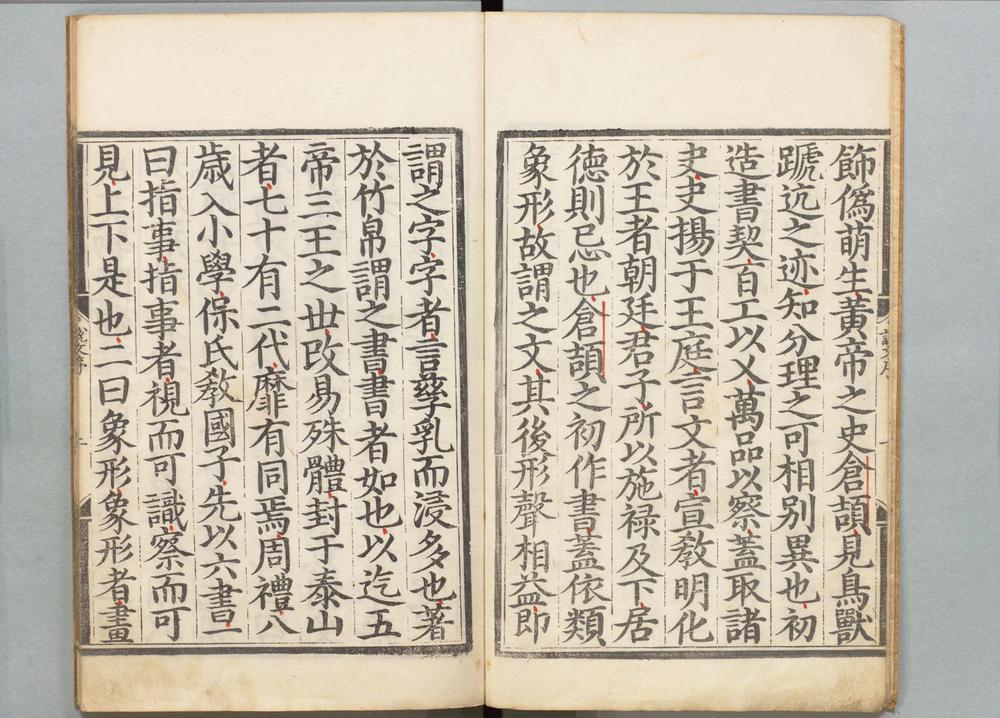 飾僞萌生黄帝之史倉頡見鳥獸
蹏迒之迹知分理之可相別異也初
造書契百工以乂萬品以察蓋取諸
夬夬揚于王庭言文者宣敎明化
於王者朝廷君子所以施禄及下居
德則忌也倉頡之初作書蓋依類
象形故謂之文其後形聲相益即
謂之字字者言孳乳而浸多也著
於竹帛謂之書書者如也以迄五
帝三王之世改易殊體封于泰山
者七十有二代靡有同焉周禮八
歳入小學保氏敎國子先以六書一
曰指事指事者視而可識察而可
見上下是也二曰象形象形者畫